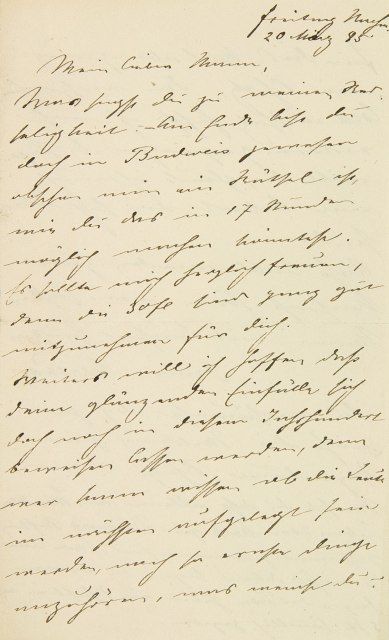 Freitag Nachm.
20 März 95.
Mein lieber Mann,
Was sagst du zu meiner
seligkeit. – Am Ende bist du
doch in Budweis gewesen
obschon mir ein Räthsel ist,
wie du das in 17 Stunden
möglich machen konntest.
Es sollte mich herzlich freuen,
denn die 30 fl sind ganz gut
mitzunehmen für dich.
Weiters will ich hoffen dass
deine glänzenden Einfälle sich
doch noch in diesem Jahrhundert
beweisen lassen werden, denn
wer kann wissen ob die Leute
im nächsten aufgelegt sein
werden, noch so ernste Dinge
anzuhören, was meinst du?